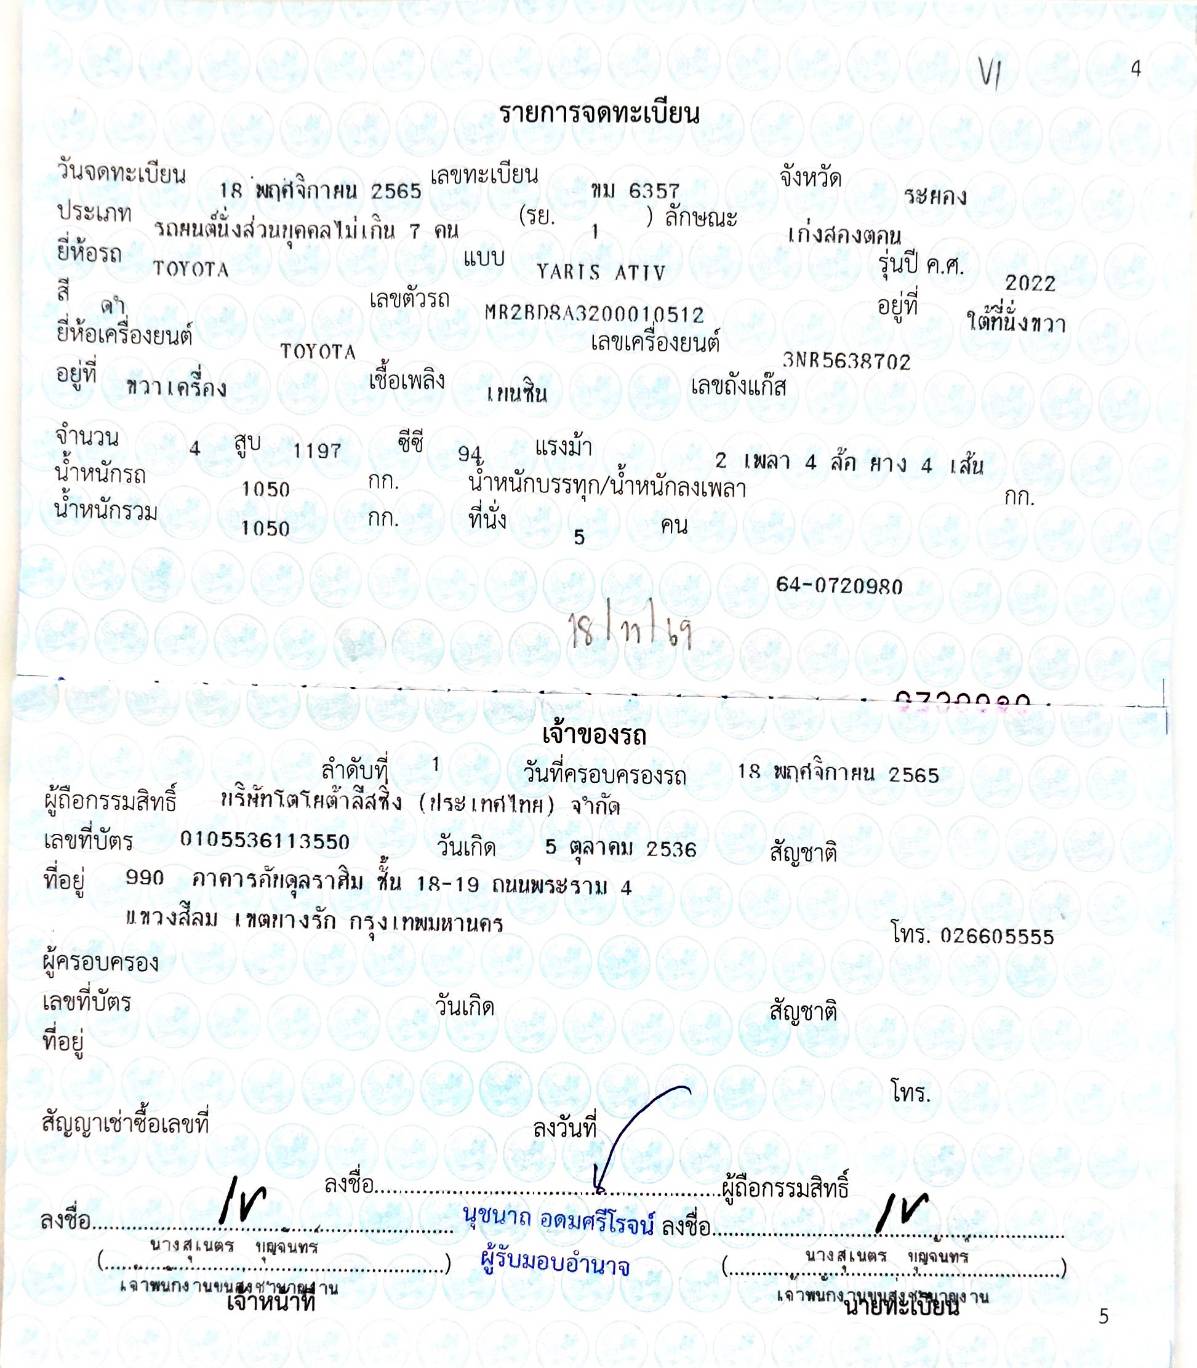 V1 4
รายการจดทะเบียน
วันจดทะเบียน 18 พฤศจิกายน 2565 เลขทะเบียน ขม 6357 จังหวัด ระยอง
ประเภท รถยนต์นั่งส่วนบุคคลไม่เกิน 7 คน (รย. 1 ) ลักษณะ เก๋งสองตอน
ยี่ห้อรถ TOYOTA แบบ YARIS ATIV รุ่นปี ค.ศ. 2022
สี ดำ เลขตัวรถ MR2BD8A3200010512 อยู่ที่ ใต้ที่นั่งขวา
ยี่ห้อเครื่องยนต์ TOYOTA เลขเครื่องยนต์ 3NR5638702
อยู่ที่ ขวาเครื่อง เชื้อเพลิง เบนซิน เลขถังแก๊ส
จำนวน 4 สูบ 1197 ซีซี 94 แรงม้า 2 เพลา 4 ล้อ ยาง 4 เส้น
น้ำหนักรถ 1050 กก. น้ำหนักบรรทุก/น้ำหนักลงเพลา กก.
น้ำหนักรวม 1050 กก. ที่นั่ง 5 คน
64-0720980
18/11/69
เจ้าของรถ
ลำดับที่ 1 วันที่ครอบครองรถ 18 พฤศจิกายน 2565
ผู้ถือกรรมสิทธิ์ บริษัทโตโยต้าลีสซิ่ง (ประเทศไทย) จำกัด
เลขที่บัตร 0105536113550 วันเกิด 5 ตุลาคม 2536 สัญชาติ
ที่อยู่ 990 อาคารอับดุลราฮิม ชั้น 18-19 ถนนพระราม 4
แขวงสีลม เขตบางรัก กรุงเทพมหานคร โทร. 026605555
ผู้ครอบครอง
เลขที่บัตร วันเกิด สัญชาติ
ที่อยู่
โทร.
สัญญาเช่าซื้อเลขที่ ลงวันที่
ลงชื่อ ผู้ถือกรรมสิทธิ์
ลงชื่อ นุขนาถ อดมศรีโรจน์ ลงชื่อ
(นางสุเนตร บุญจันทร์) ผู้รับมอบอำนาจ (นางสุเนตร บุญจันทร์)
เจ้าพนักงานขนส่งชำนาญงาน เจ้าพนักงานขนส่งชำนาญงาน
เจ้าหน้าที่ นายทะเบียน
5